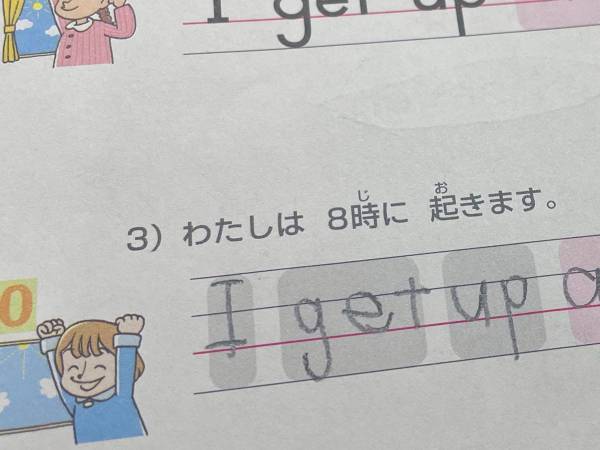 I get up
3）わたしは 8時に 起きます。
じ お
0
I get up a